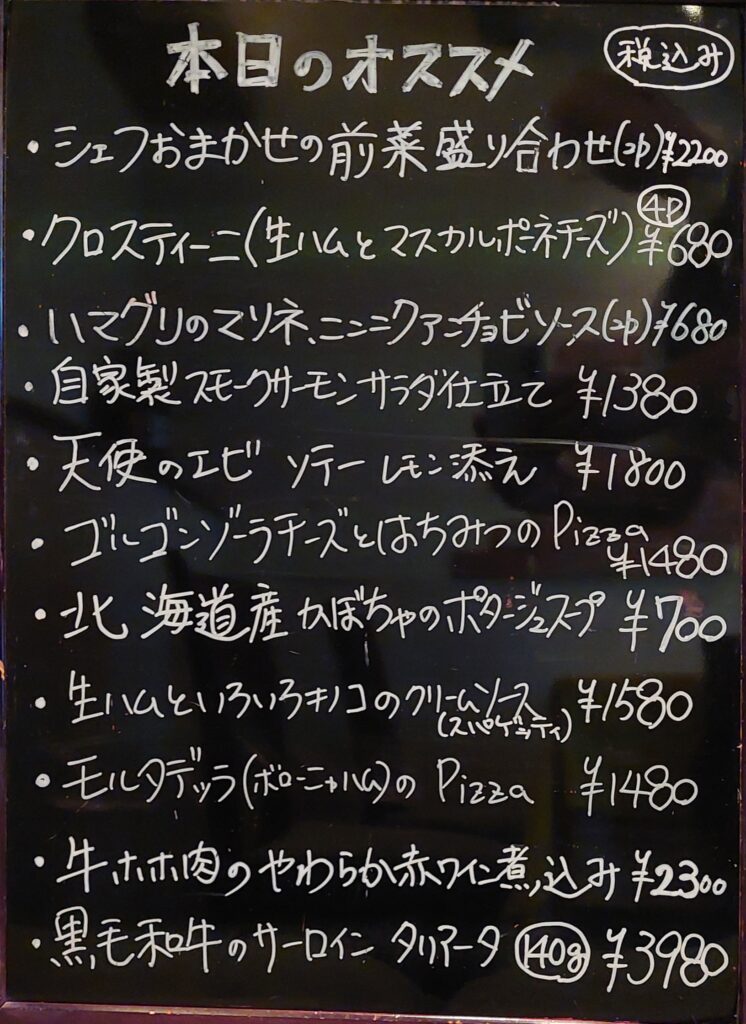 本日のオススメ 税込み
・シェフおまかせの前菜盛り合わせ(2p)¥2200
・クロスティーニ(生ハムとマスカルポーネチーズ) 4p ¥680
・ハマグリのマリネ、ニンニクアンチョビソース(2p)¥680
・自家製スモークサーモンサラダ仕立て ¥1380
・天使のエビ ソテー レモン添え ¥1800
・ゴルゴンゾーラチーズとはちみつのPizza
¥1480
・北海道産かぼちゃのポタージュスープ ¥700
・生ハムといろいろキノコのクリームソース ¥1580
(スパゲッティ)
・モルタデッラ(ボローニャハム)のPizza ¥1480
・牛ホホ肉のやわらか赤ワイン煮込み ¥2300
・黒毛和牛のサーロイン タリアータ 140g ¥3980